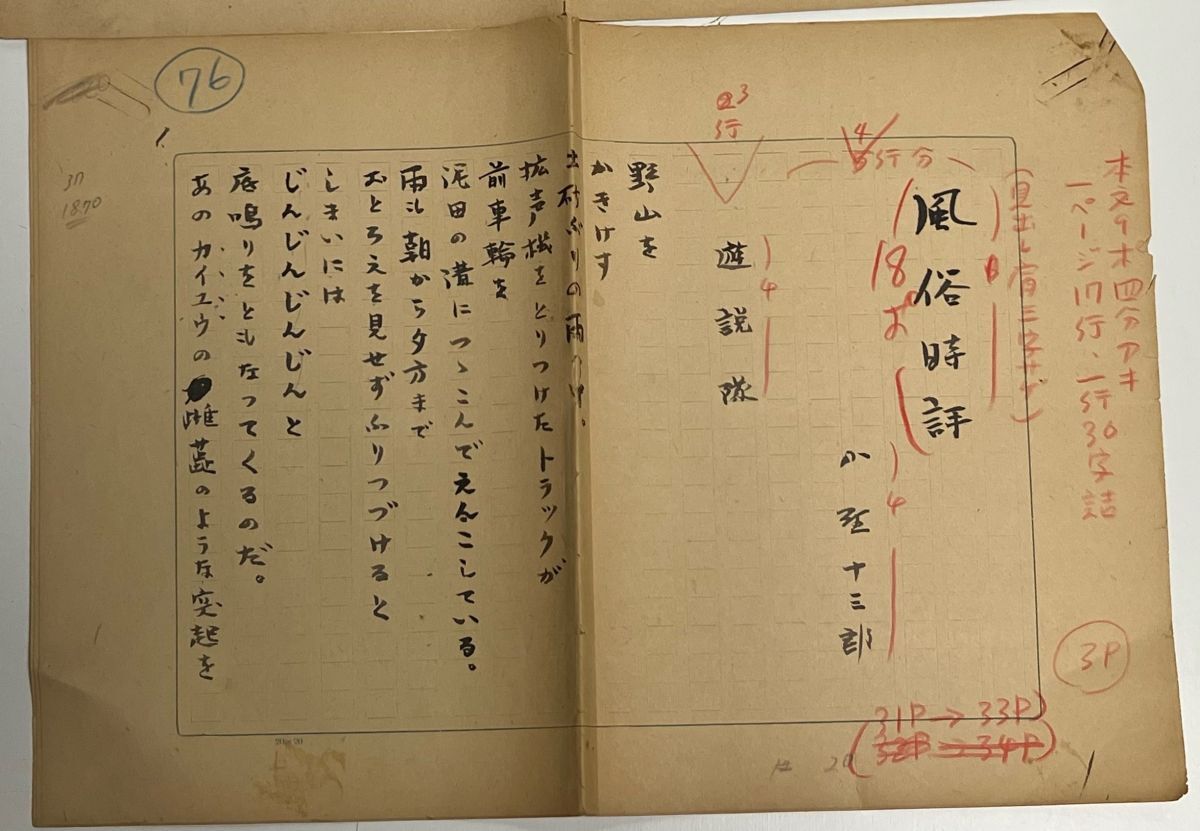 本文9ポ四分アキ
一ページ17行、一行30字詰
3P
風俗時評
18ポ
4
行分
小野十三郎
4
3
行
遊説隊
4
野山を
かきけす
土砂ふりの雨の中。
拡声機をとりつけたトラックが
前車輪を
泥田の溝につゝこんでえんこしている。
雨は朝から夕方まで
おとろえを見せずふりつづけると
しまいには
じんじんじんじんと
底鳴りをともなってくるのだ。
あのカイユウの雌蕊のような突起を
31P→33P
32P→34P
76
1870
20×20